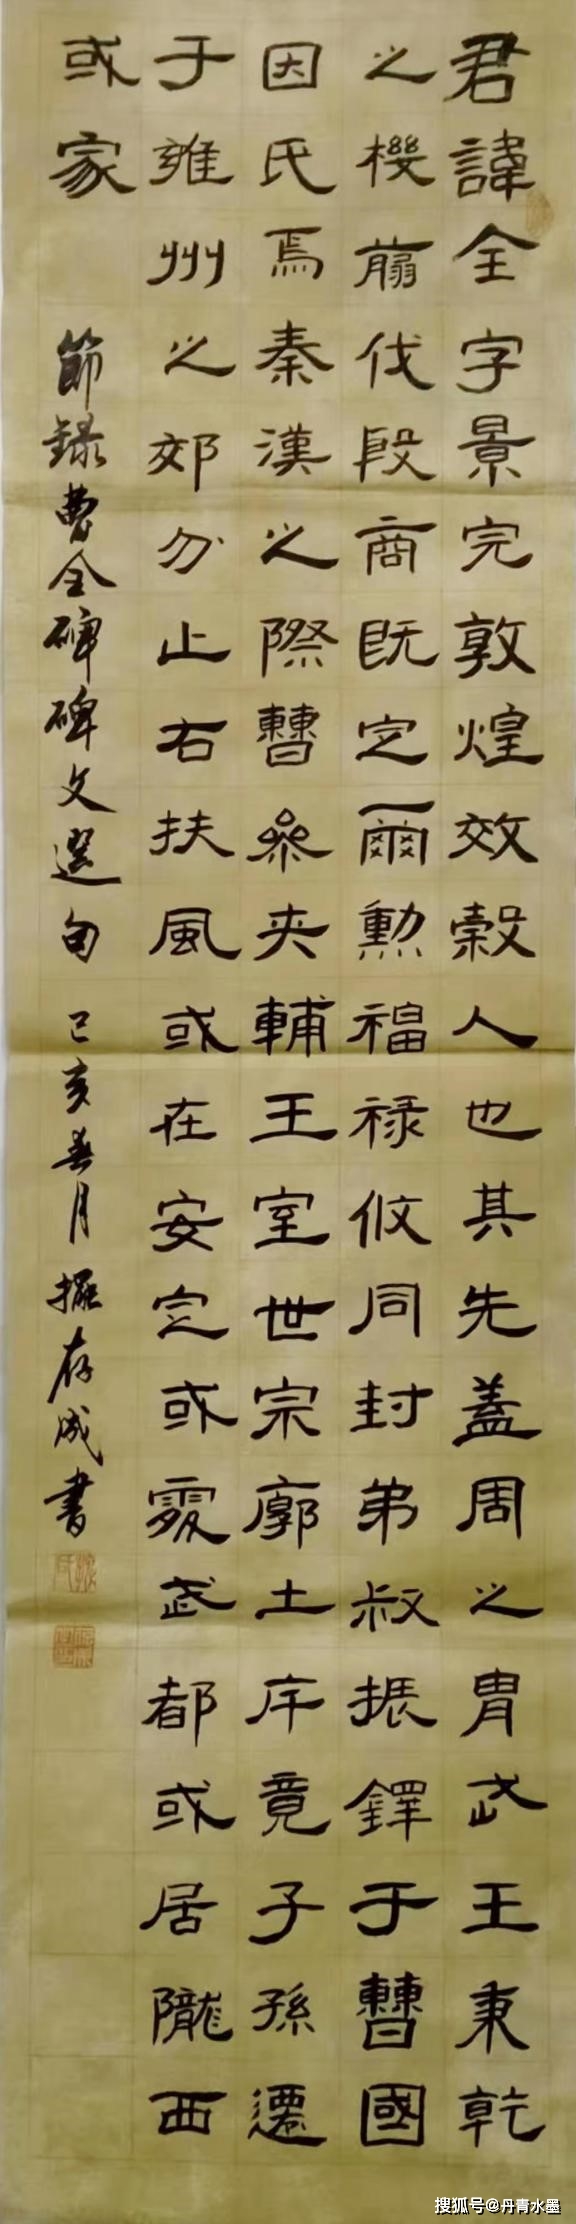 君諱全字景完敦煌效榖人也其先蓋周之胄武王秉乾
之機翦伐殷商既定爾勲福祿攸同封弟叔振鐸于曹國
因氏焉秦漢之際曹参夾輔王室世宗廓土斥竟子孫遷
于雍州之郊分止右扶風或在安定或處武都或居隴西
或家
節錄曹全碑碑文選句 己亥春月 存成書
搜狐号@丹青水墨